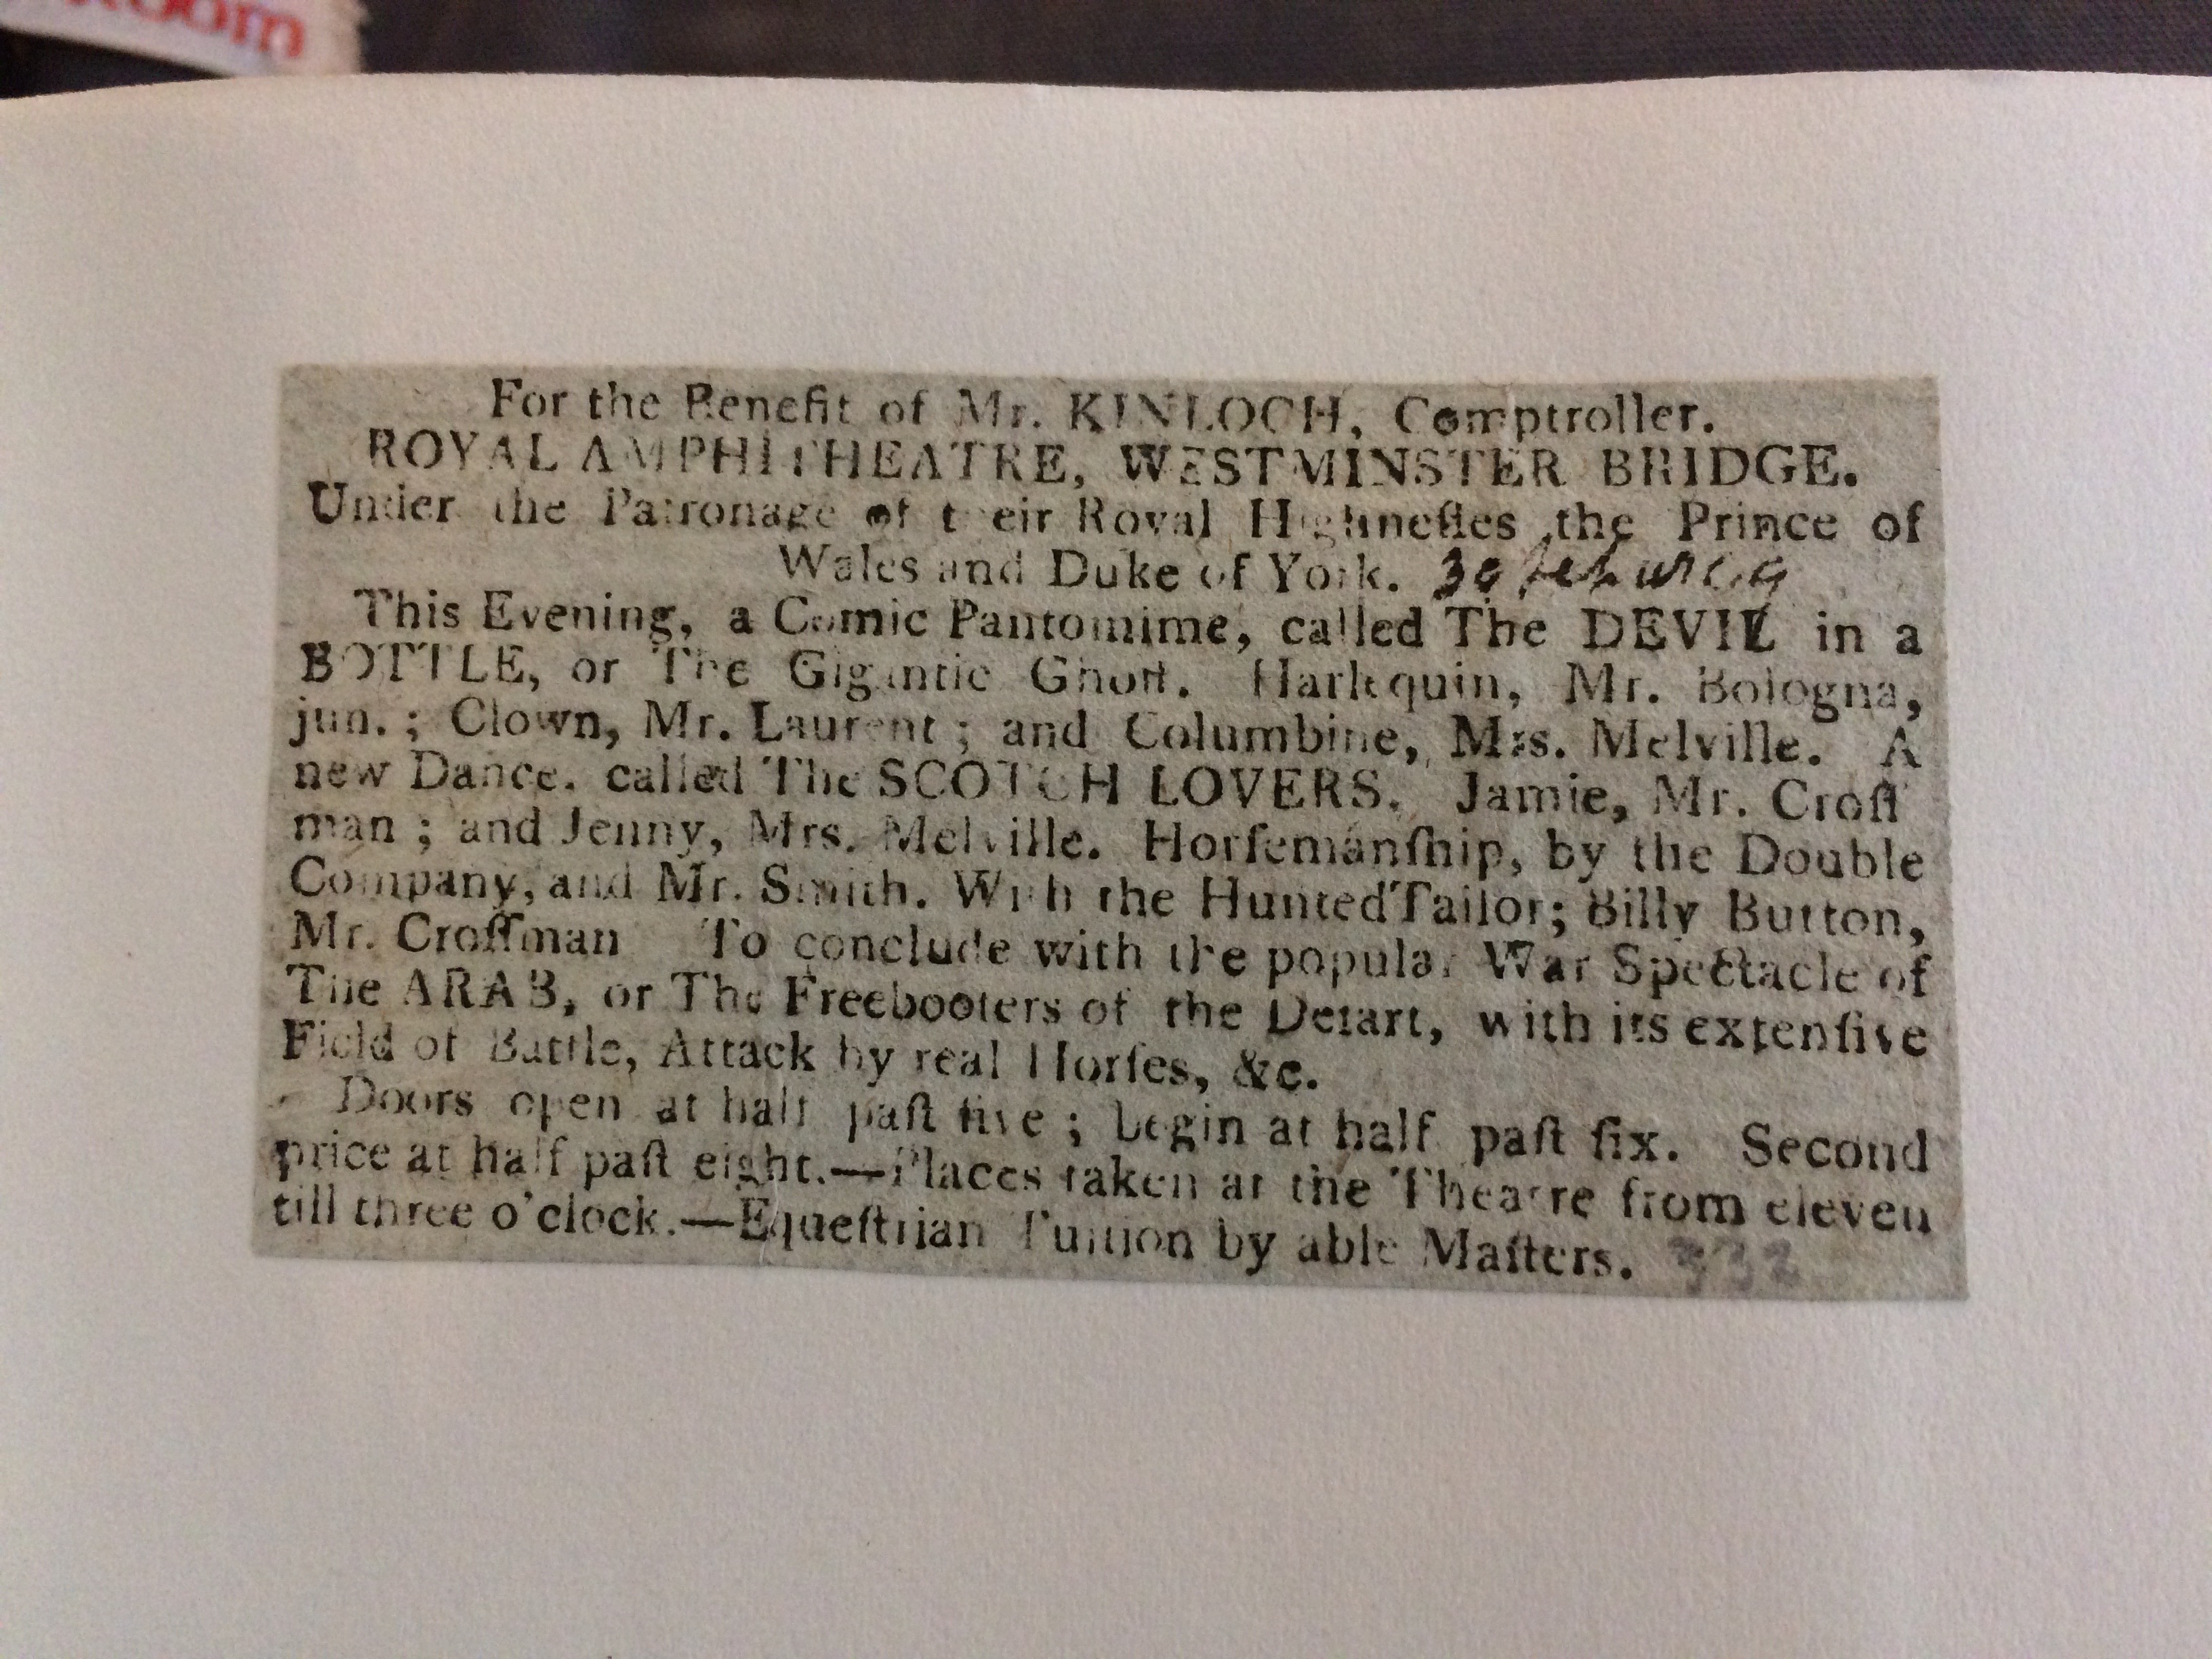 room
For the Benefit of Mr. KINLOCH, Comptroller.
ROYAL AMPHITHEATRE, WESTMINSTER BRIDGE.
Under the Patronage of their Royal Highneſſes the Prince of
Wales and Duke of York. 30
This Evening, a Comic Pantomime, called The DEVIL in a
BOTTLE, or The Gigantic Ghoſt. Harlequin, Mr. Bologna,
jun. ; Clown, Mr. Laurent ; and Columbine, Mrs. Melville. A
new Dance. called The SCOTCH LOVERS. Jamie, Mr. Croſſ
man ; and Jenny, Mrs. Melville. Horſemanſhip, by the Double
Company, and Mr. Smith. With the Hunted Tailor; Billy Button,
Mr. Croſſman To conclude with the popular War Spectacle of
The ARAB, or The Freebooters of the Deſart, with its extenſive
Field of Battle, Attack by real Horſes, &c.
Doors open at half paſt five ; begin at half paſt ſix. Second
price at half paſt eight.—Places taken at the Theatre from eleven
till three o'clock.—Equeſtrian Tuition by able Maſters. 332